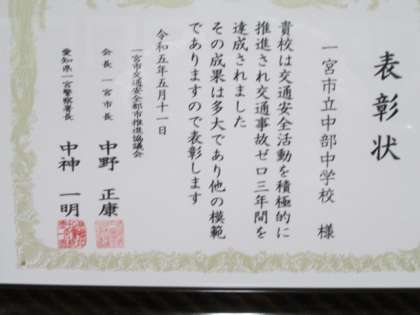 表彰状
一宮市立中部中学校 様
貴校は交通安全活動を積極的に
推進され交通事故ゼロ三年間を
達成されました
その成果は多大であり他の模範
でありますので表彰します
令和五年五月十一日
一宮市交通安全都市推進協議会
会長 一宮市長 中野 正康
愛知県一宮警察署長 中神 一明